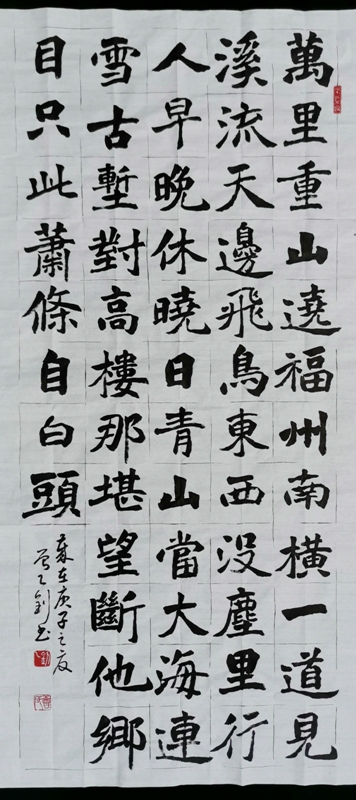 萬里重山遶福州南橫一道見
溪流天邊飛鳥東西没塵里行
人早晚休曉日青山當大海連
雪古塹對高樓那堪望斷他鄉
目只此蕭條自白頭
歲在庚子之夏